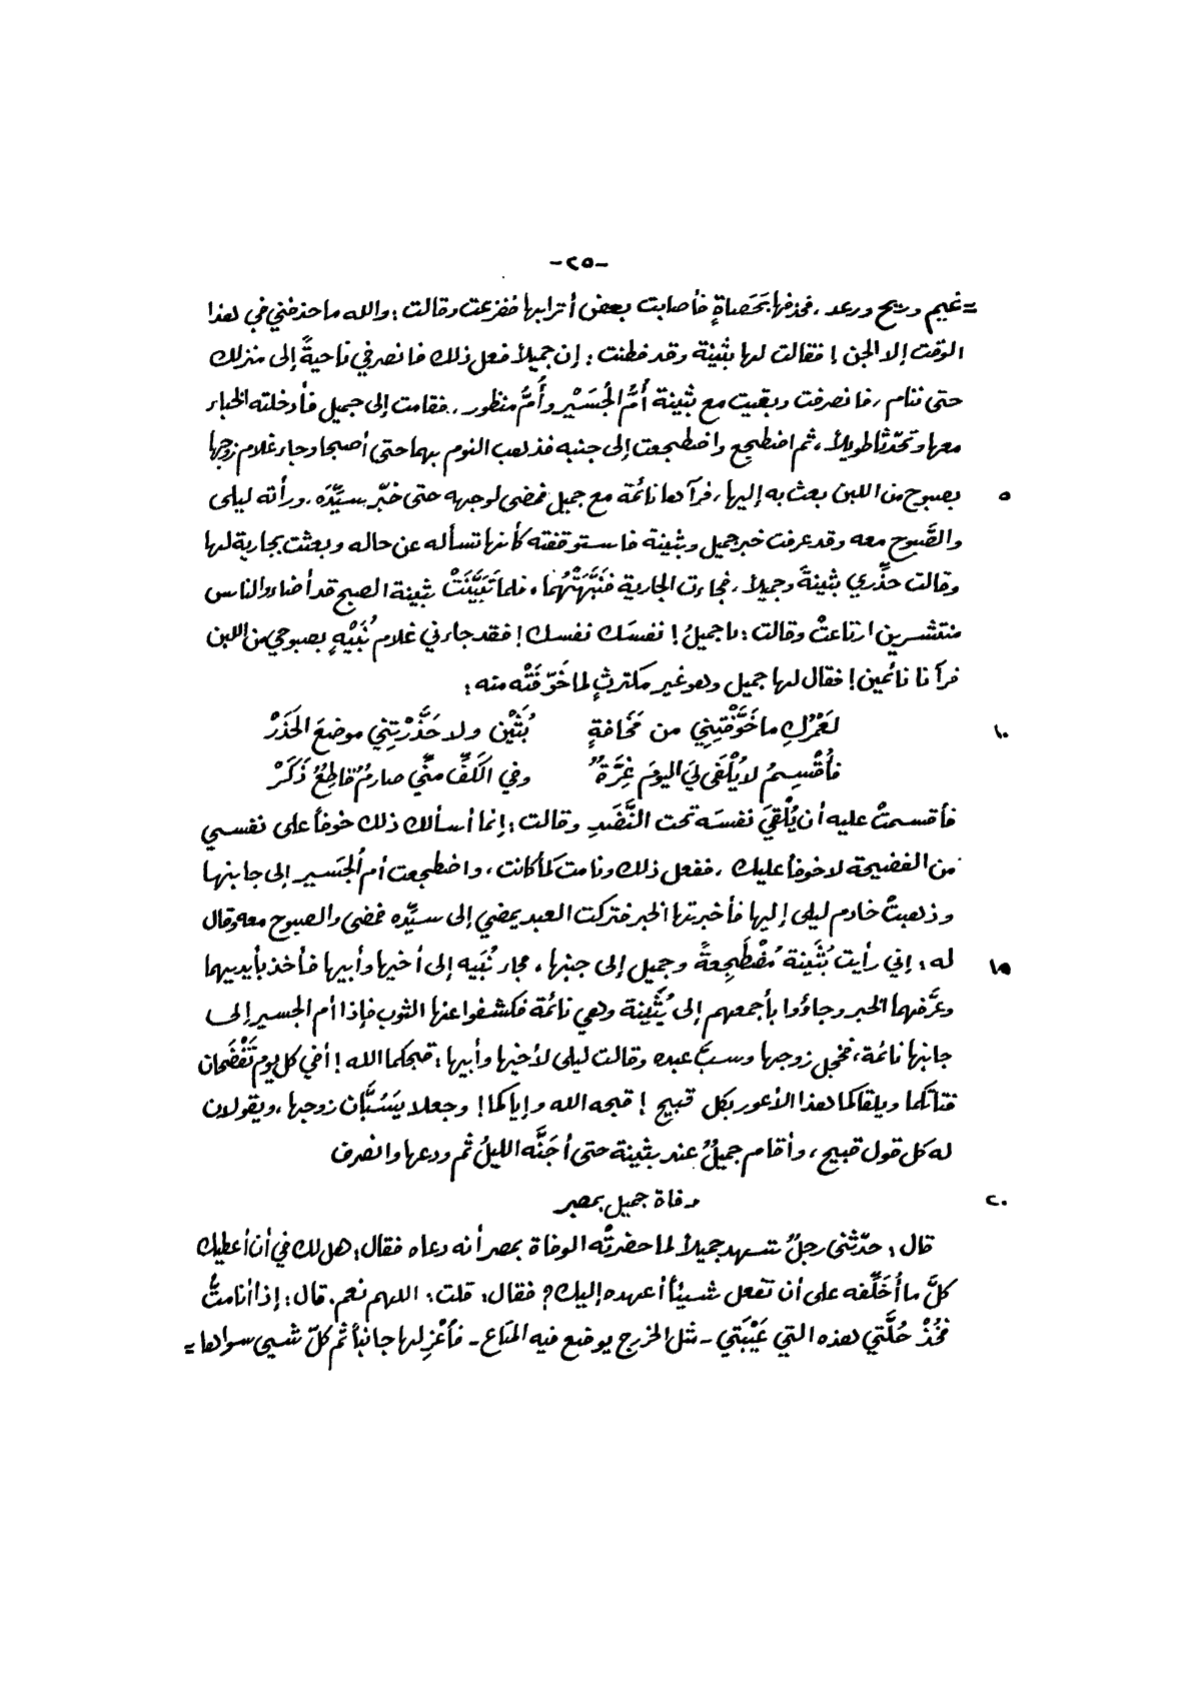 -٢٥-
= غيم وريح ورعد ، فحذفها بَحَصاةٍ فأصابت بعض أترابها ففزعت وقالت : والله ما حذفني في هذا
الوقت إلا الجن ! فقالت لها بثينة وقد فطنت : إن جميلاً فعل ذلك فانصرفي ناحيةً إلى منزلك
حتى ننام ، فانصرفت وبقيت مع بثينة أُمُّ الجُسَيْر وأُمُّ منظور ، فقامت إلى جميل فأدخلته الخباء
معها وتحدّثا طويلاً ، ثم اضطجع واضطجعت إلى جنبه فذهب النوم بهما حتى أصبحا وجاء غلام زوجها
٥ بصبوح من اللبن بعث به إليها ، فرآها نائمة مع جميل فمضى لوجهه حتى خبّر سيّدَه . ورأته ليلى
والصَّبوح معه وقد عرفت خبر جميل وبثينة فاستوقفته كأنها تسأله عن حاله وبعثت بجارية لها
وقالت حذِّري بثينةَ وجميلاً ، فجاءت الجارية فَنَبَّهَتْهُما . فلما تَبَيَّنَتْ بثينة الصبح قد أضاء والناس
منتشرين ارتاعتْ وقالت : يا جميلُ ! نفسَك نفسك ! فقد جاءني غلام نُبَيْهٍ بصبوحي من اللبن
فرآنا نائمين ! فقال لها جميل وهو غير مكترثٍ لما خَوّفَتْه منه :
١٠ لَعَمْرُكِ ما خَوَّفْتِنِي من مَخَافةٍ بُثَيْن ولا حَذَّرْتِنِي موضعَ الحَذَرْ
فأُقْسِمُ لا يُلْفَى ليَ اليومَ غِرَّةٌ وفي الكَفِّ منّي صارمٌ قاطِعٌ ذَكَرْ
فأقسمتْ عليه أن يُلْقيَ نفسَه تحت النَّضَدِ وقالت : إنما أسألك ذلك خوفاً على نفسي
من الفضيحة لا خوفاً عليك ، ففعل ذلك ونامت كما كانت ، واضطجعت أم الجُسَير إلى جانبها
وذهبتْ خادم ليلى إليها فأخبرتها الخبر فتركت العبد يمضي إلى سيّده فمضى والصبوح معه وقال
١٥ له : إني رأيت بُثَينة مُضْطَجِعةً وجميل إلى جنبها ، فجاء نُبَيه إلى أخيها وأبيها فأخذ بأيديهما
وعرَّفهما الخبر وجاؤوا بأجمعهم إلى بُثَينة وهي نائمة فكشفوا عنها الثوب فإذا أم الجسير إلى
جانبها نائمة ، فخجل زوجها وسبَّ عبده وقالت ليلى لأخيها وأبيها : قبحكما الله ! أفي كل يوم تَفْضَحان
فتاتكما ويلقاكما هذا الأعور بكل قبيح ! قبحه الله وإياكما ! وجعلا يَسُبَّان زوجها ، ويقولان
له كل قول قبيح ، وأقام جميلٌ عند بثينة حتى أجَنَّه الليلُ ثم ودعها وانصرف
٢٠ وفاة جميل بمصر
قال : حدّثني رجلٌ شهد جميلاً لما حضرتْه الوفاة بمصر أنه دعاه فقال : هل لك في أن أعطيك
كلَّ ما أُخَلِّفه على أن تفعل شيئاً أعهده إليك ؟ فقال : قلت : اللهم نعم . قال : إذا أنا متُّ
فخُذْ حُلَّتي هذه التي عَيْبَتي - مثل الخرج يوضع فيه المتاع - فأَعْزِلها جانباً ثم كلّ شيء سواها =